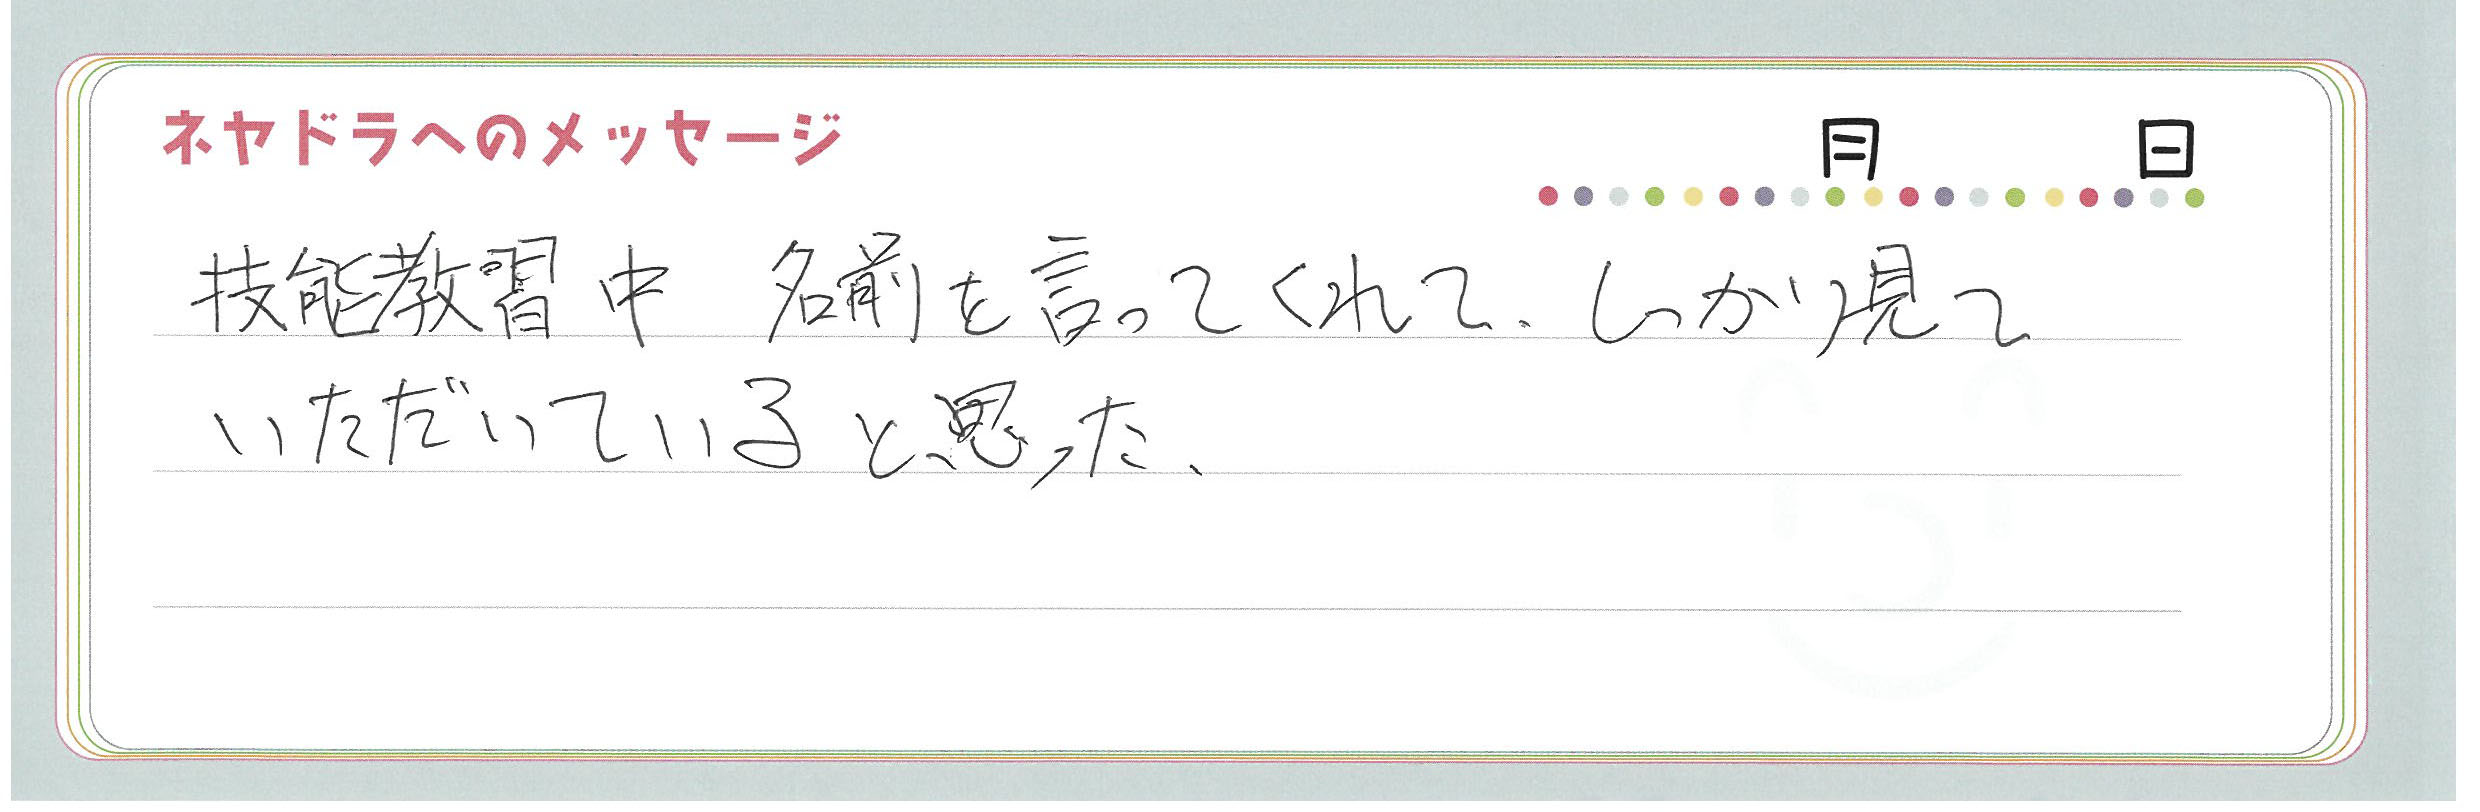 ネヤドラへのメッセージ
月 日
技能教習中 名前を言ってくれて、しっかり見て
いただいていると思った、